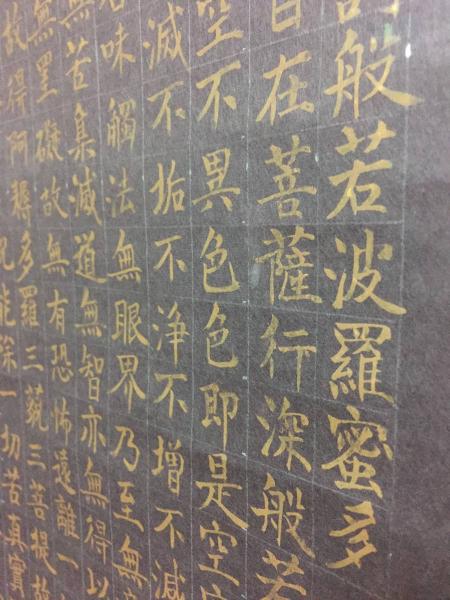 般若波羅蜜多
在菩薩行深般若
空不異色色即是空
滅不垢不淨不增不減
味觸法無眼界乃至無
無苦集滅道無智亦無得以
無罣礙故無有恐怖遠離一
故得阿耨多羅三藐三菩提故
咒能除一切苦真實